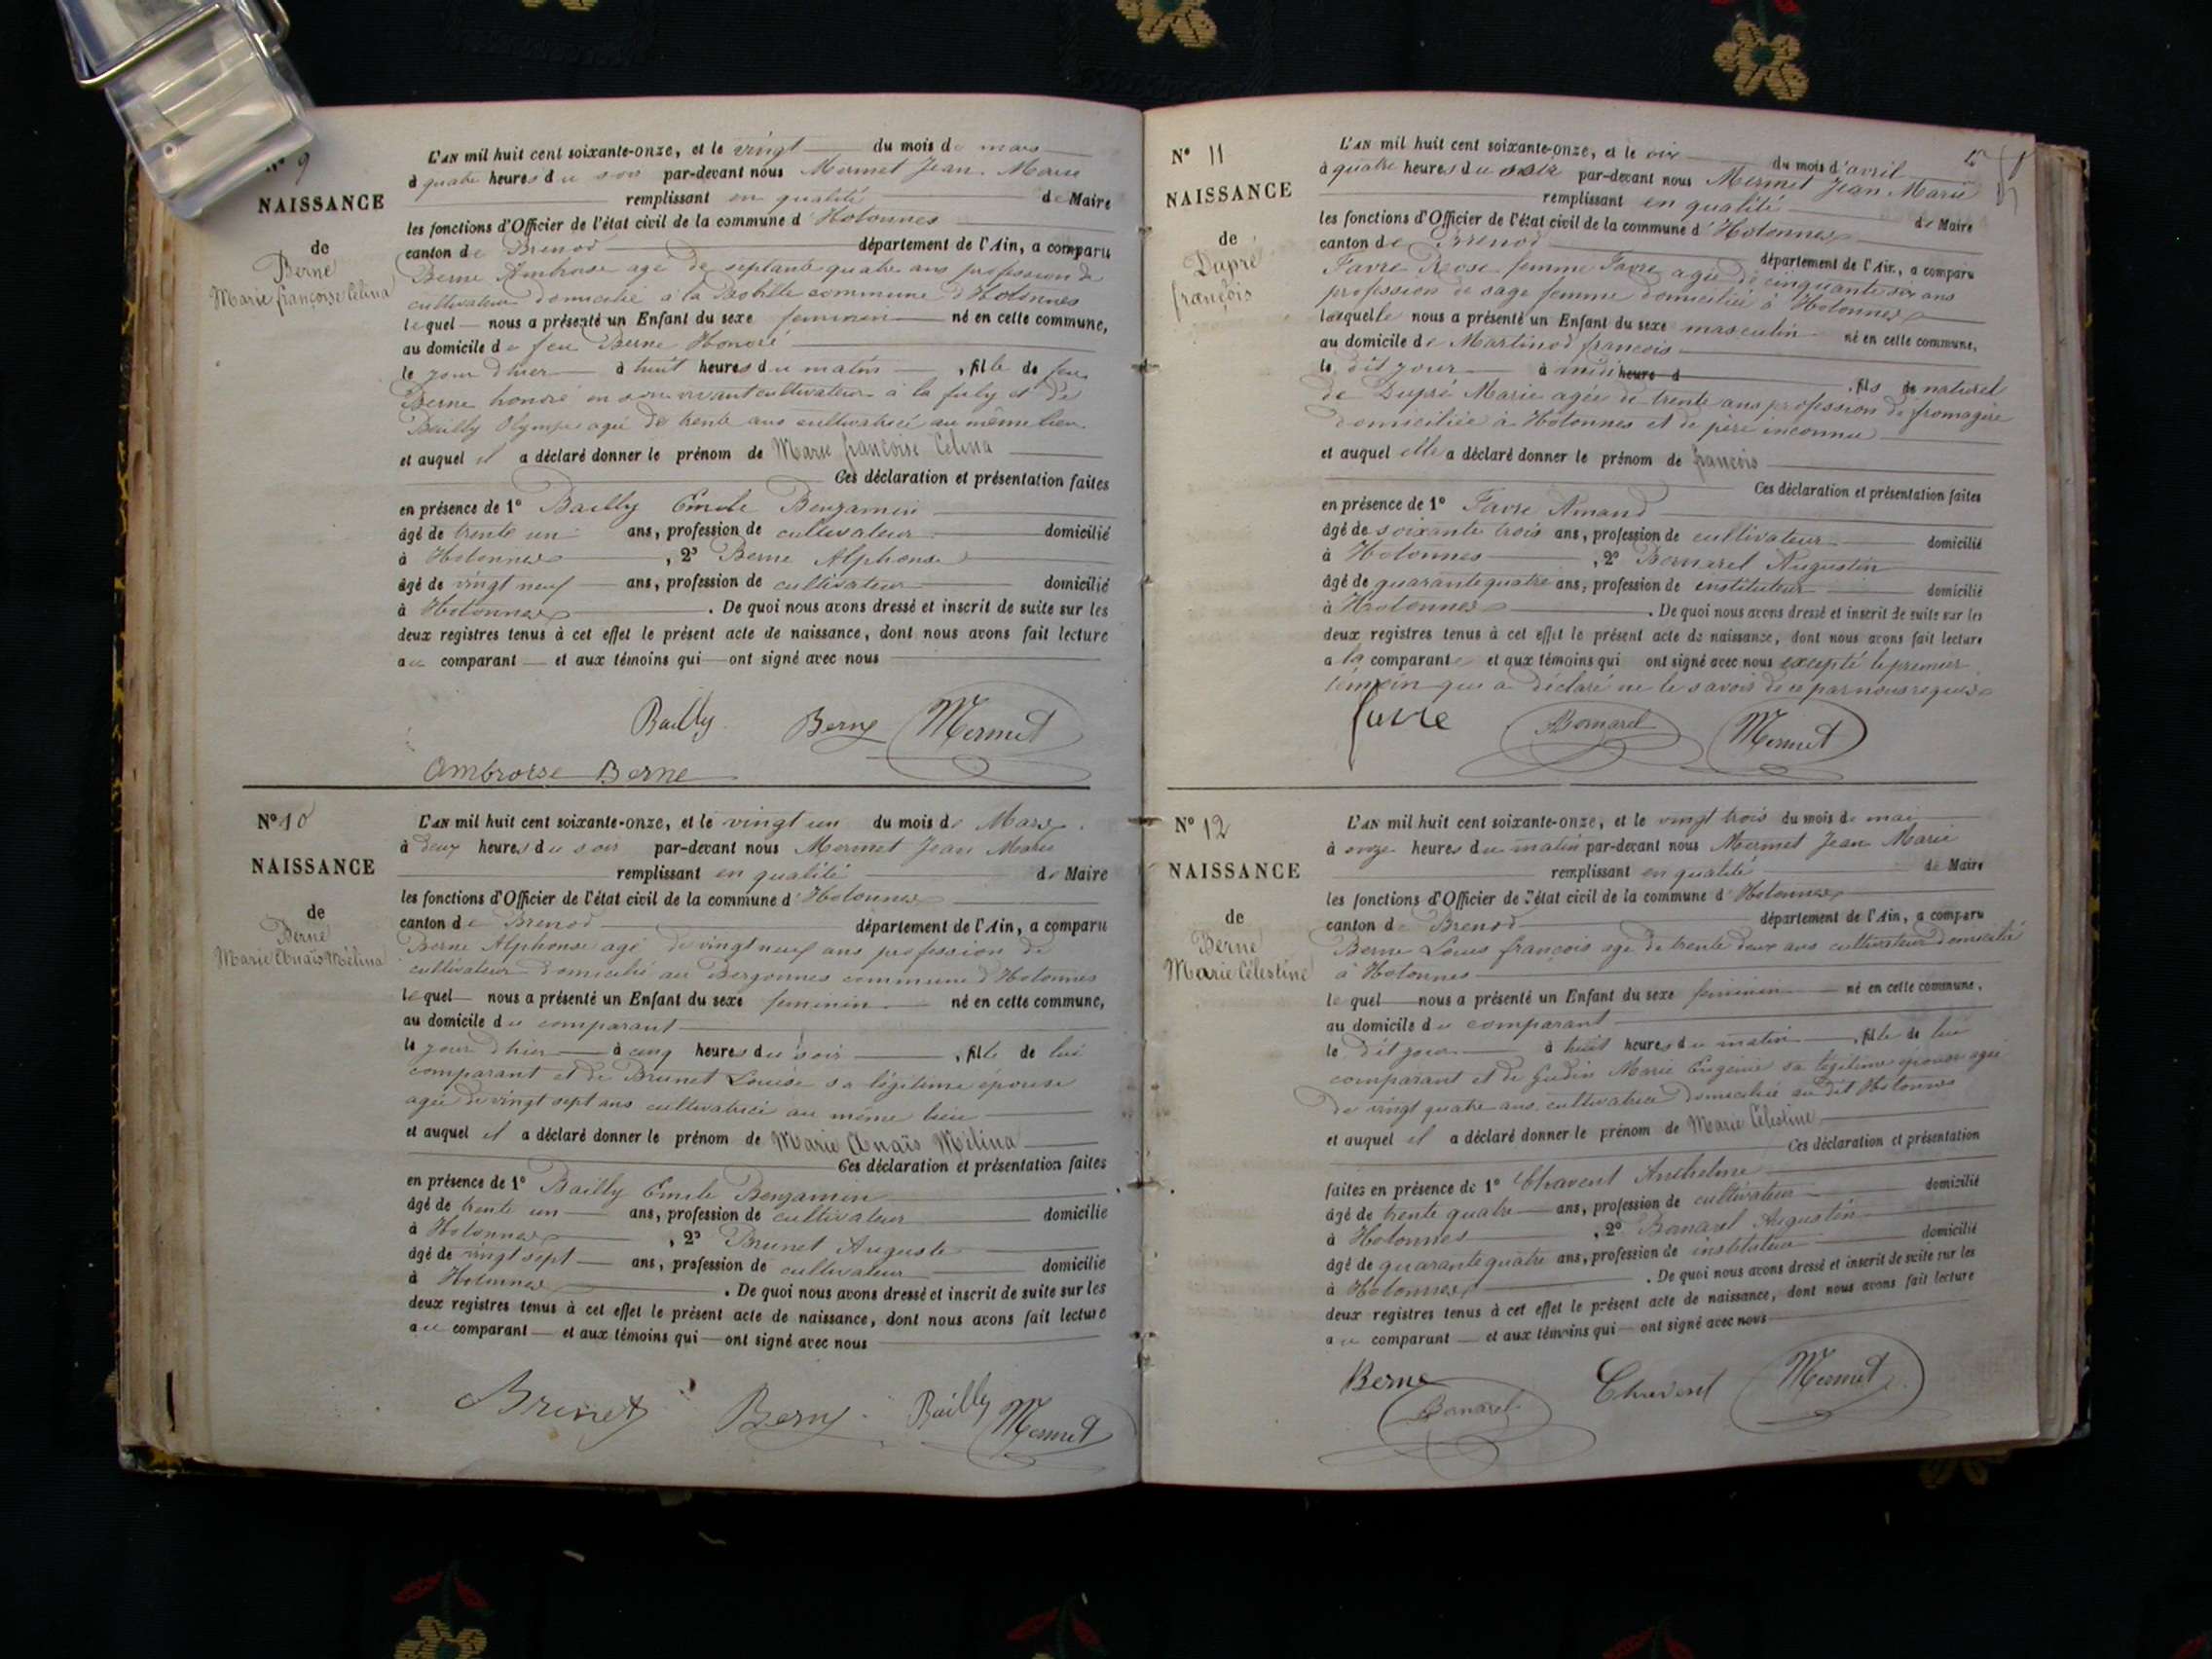 N° 9
NAISSANCE
de
Berne
Marie françoise Célina
L'AN mil huit cent soixante-onze, et le vingt du mois de mars
à quatre heures du soir par-devant nous Mermet Jean Marie
remplissant en qualité de Maire
les fonctions d'Officier de l'état civil de la commune d'Hotonnes
canton de Brenod département de l'Ain, a comparu
Berne Ambroise agé de septante quatre ans profession de
cultivateur domicilié à la commune d'Hotonnes
lequel nous a présenté un Enfant du sexe feminin né en cette commune,
au domicile de feu Berne Honoré
le jour d'hier à huit heures du matin, fille de feu
Berne honoré en son vivant cultivateur à la et de
Bailly Olympe agée de trente ans cultivatrice au même lieu
et auquel il a déclaré donner le prénom de Marie françoise Célina
Ces déclaration et présentation faites
en présence de 1° Bailly Emile Benjamin
âgé de trente un ans, profession de cultivateur domicilié
à Hotonnes, 2° Berne Alphonse
âgé de vingt neuf ans, profession de cultivateur domicilié
à Hotonnes. De quoi nous avons dressé et inscrit de suite sur les
deux registres tenus à cet effet le présent acte de naissance, dont nous avons fait lecture
au comparant et aux témoins qui ont signé avec nous
Bailly Berne Mermet
Ambroise Berne
N° 10
NAISSANCE
de
Berne
Marie Anaïs Mélina
L'AN mil huit cent soixante-onze, et le vingt un du mois de Mars
à deux heures du soir par-devant nous Mermet Jean Marie
remplissant en qualité de Maire
les fonctions d'Officier de l'état civil de la commune d'Hotonnes
canton de Brenod département de l'Ain, a comparu
Berne Alphonse agé de vingt neuf ans profession de
cultivateur domicilié aux Bergonnes commune d'Hotonnes
lequel nous a présenté un Enfant du sexe feminin né en cette commune,
au domicile du comparant
le jour d'hier à cinq heures du soir, fille de lui
comparant et de Brunet Louise sa légitime épouse
agée de vingt sept ans cultivatrice au même lieu
et auquel il a déclaré donner le prénom de Marie Anaïs Mélina
Ces déclaration et présentation faites
en présence de 1° Bailly Emile Benjamin
âgé de trente un ans, profession de cultivateur domicilié
à Hotonnes, 2° Brunet Auguste
âgé de vingt sept ans, profession de cultivateur domicilié
à Hotonnes. De quoi nous avons dressé et inscrit de suite sur les
deux registres tenus à cet effet le présent acte de naissance, dont nous avons fait lecture
au comparant et aux témoins qui ont signé avec nous
Brunet Berne Bailly Mermet
N° 11
NAISSANCE
de
Dupré
françois
L'AN mil huit cent soixante-onze, et le six du mois d'avril
à quatre heures du soir par-devant nous Mermet Jean Marie
remplissant en qualité de Maire
les fonctions d'Officier de l'état civil de la commune d'Hotonnes
canton de Brenod département de l'Ain, a comparu
Favre Rose femme Favre agée de cinquante six ans
profession de sage femme domiciliée à Hotonnes
laquelle nous a présenté un Enfant du sexe masculin né en cette commune,
au domicile de Martinod françois
le dit jour à midi heure d, fils de naturel
de Dupré Marie agée de trente ans profession de fromagère
domiciliée à Hotonnes et de père inconnu
et auquel elle a déclaré donner le prénom de françois
Ces déclaration et présentation faites
en présence de 1° Favre Amand
âgé de soixante trois ans, profession de cultivateur domicilié
à Hotonnes, 2° Bornarel Augustin
âgé de quarante quatre ans, profession de instituteur domicilié
à Hotonnes. De quoi nous avons dressé et inscrit de suite sur les
deux registres tenus à cet effet le présent acte de naissance, dont nous avons fait lecture
a la comparante et aux témoins qui ont signé avec nous excepté le premier
témoin qui a déclaré ne le savoir de ce par nous requis
favre Bornarel Mermet
N° 12
NAISSANCE
de
Berne
Marie Célestine
L'AN mil huit cent soixante-onze, et le vingt trois du mois de mai
à onze heures du matin par-devant nous Mermet Jean Marie
remplissant en qualité de Maire
les fonctions d'Officier de l'état civil de la commune d'Hotonnes
canton de Brenod département de l'Ain, a comparu
Berne Louis françois agé de trente deux ans cultivateur domicilié
à Hotonnes
lequel nous a présenté un Enfant du sexe feminin né en cette commune,
au domicile du comparant
le dit jour à huit heures du matin, fille de lui
comparant et de Gudin Marie Eugénie sa légitime épouse agée
de vingt quatre ans cultivatrice domiciliée au dit Hotonnes
et auquel il a déclaré donner le prénom de Marie Célestine
Ces déclaration et présentation
faites en présence de 1° Chavent Anthelme
âgé de trente quatre ans, profession de cultivateur domicilié
à Hotonnes, 2° Bornarel Augustin
âgé de quarante quatre ans, profession de instituteur domicilié
à Hotonnes. De quoi nous avons dressé et inscrit de suite sur les
deux registres tenus à cet effet le présent acte de naissance, dont nous avons fait lecture
au comparant et aux témoins qui ont signé avec nous
Berne Chavent Mermet
Bornarel